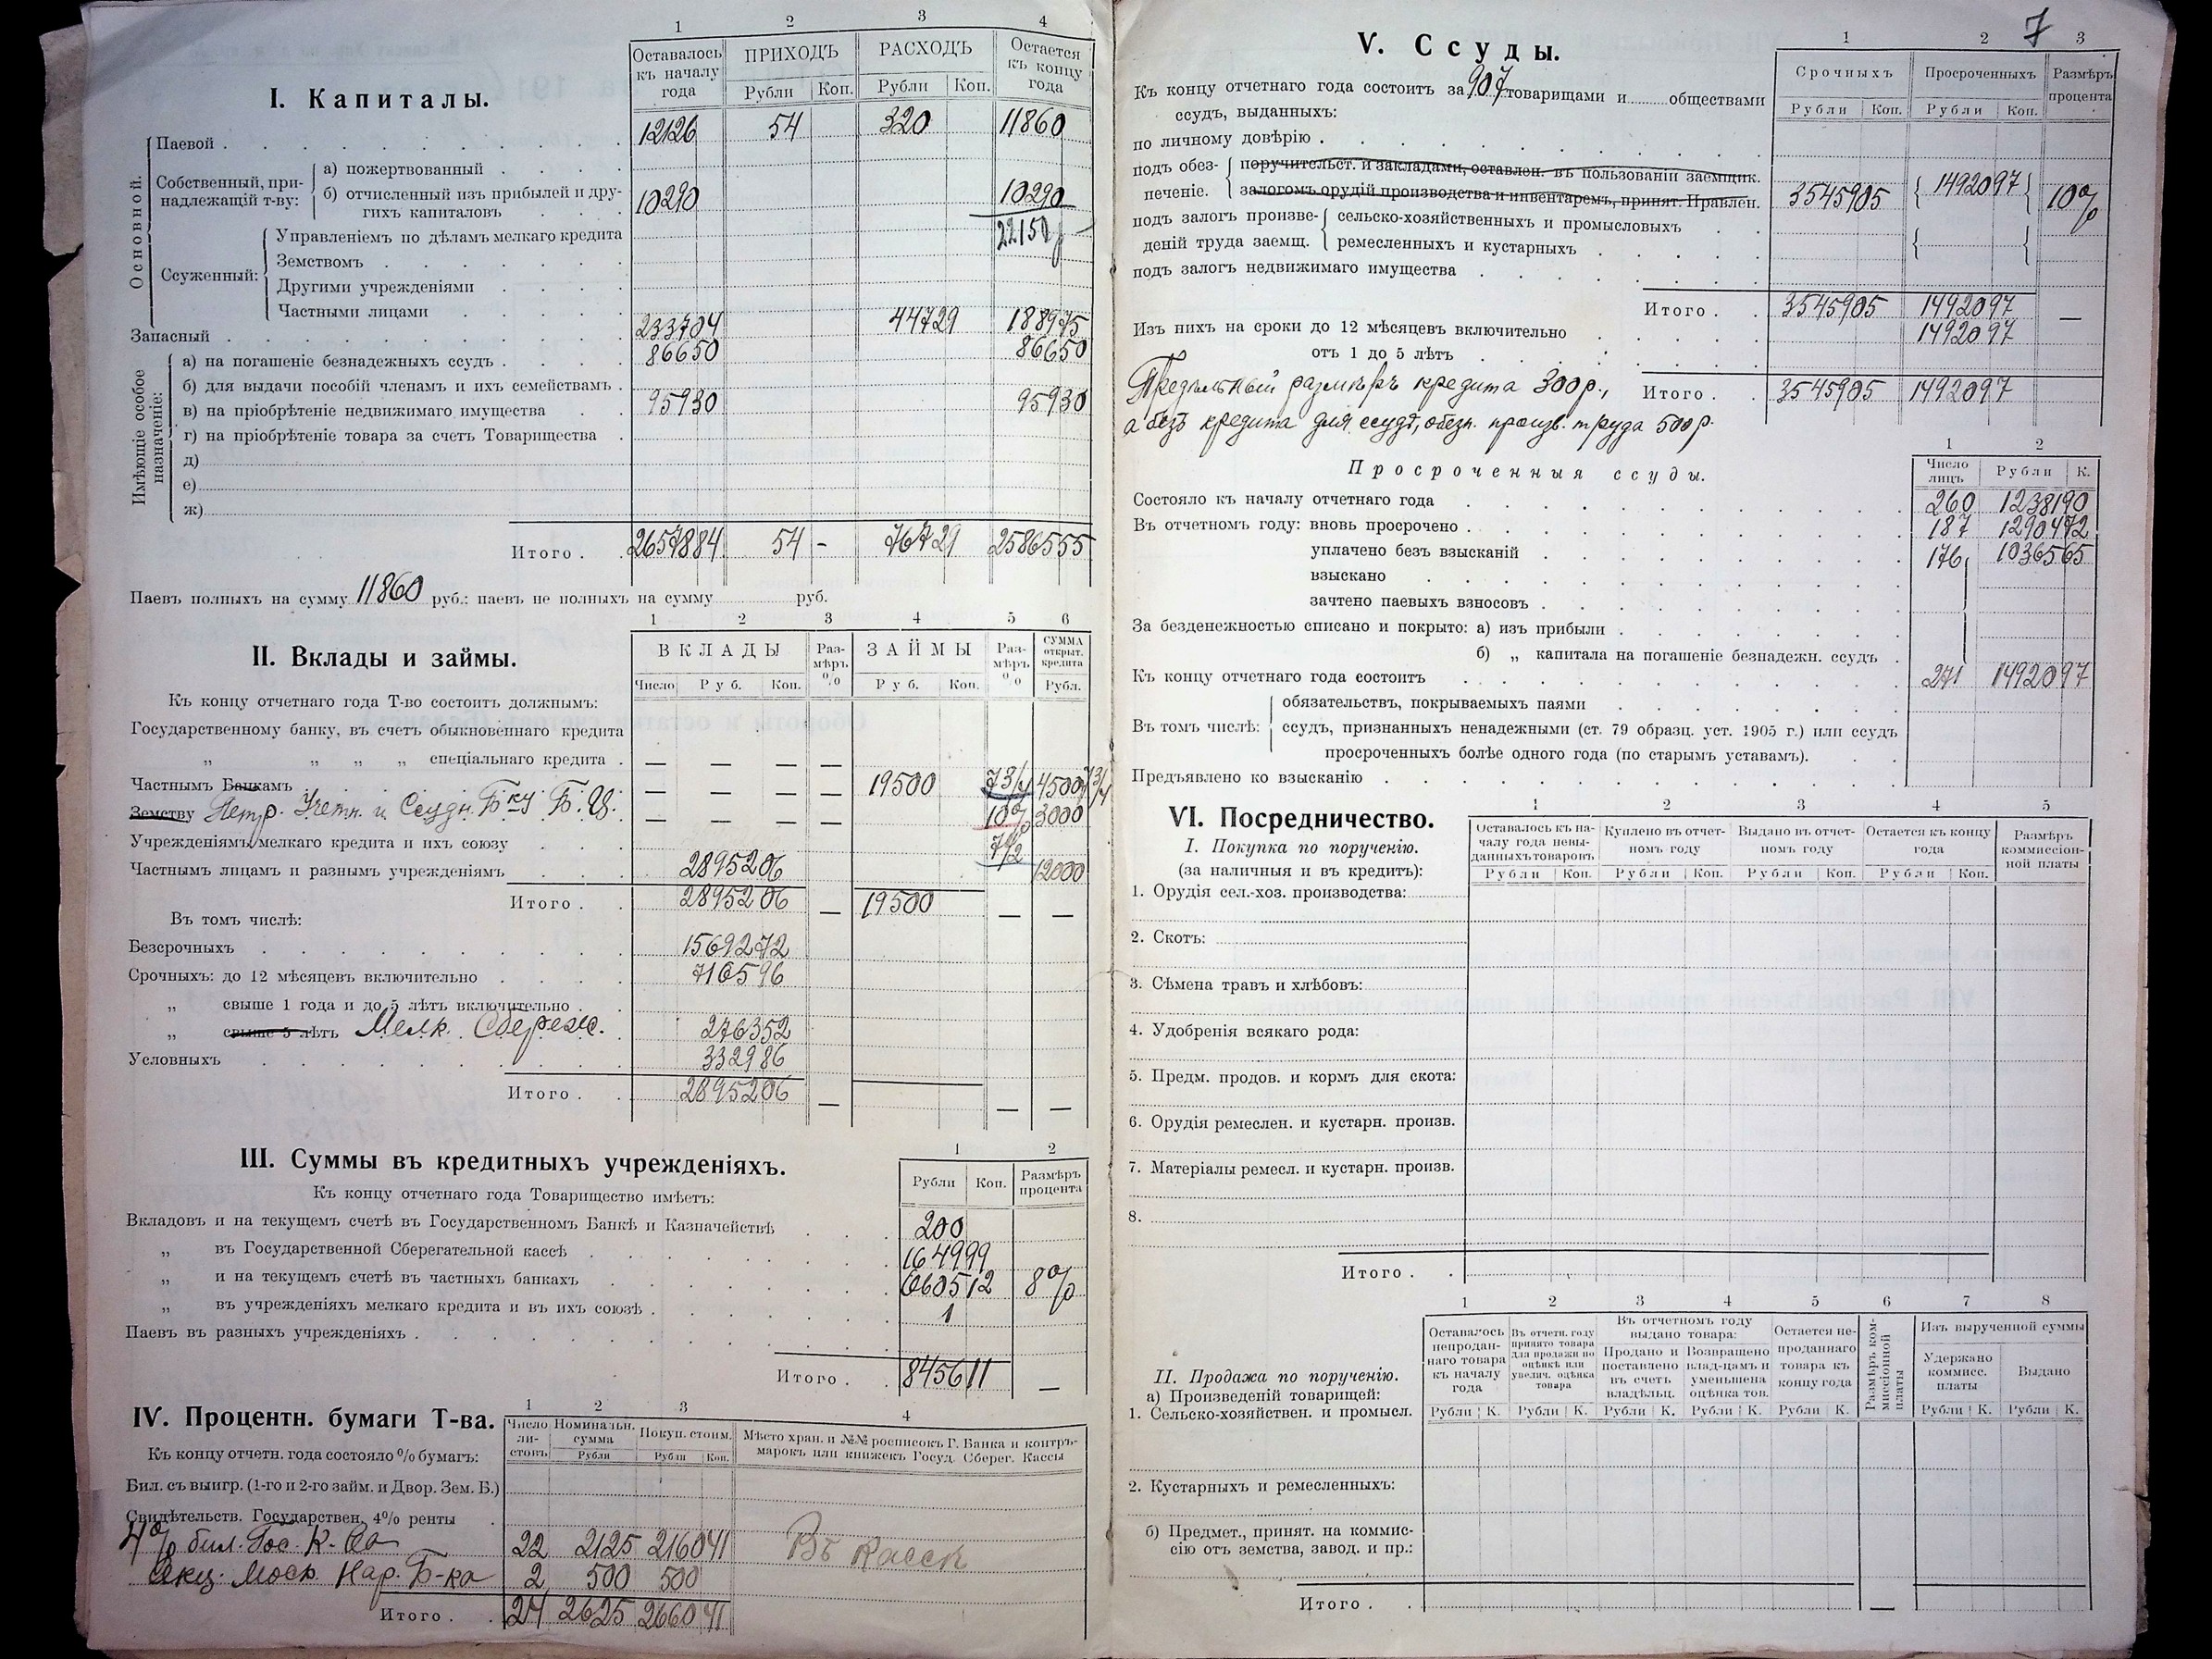 I. Капиталы.
1 2 3 4
Оставалось къ началу года ПРИХОДЪ РАСХОДЪ Остается къ концу года
Рубли Коп. Рубли Коп.
Основной.
Паевой 12126 54 320 11860
Собственный, принадлежащій т-ву:
а) пожертвованный
б) отчисленный изъ прибылей и другихъ капиталовъ 10290 10290
22150
Ссуженный:
Управленіемъ по дѣламъ мелкаго кредита
Земствомъ
Другими учрежденіями
Частными лицами
Запасный 233704 44729 188975
Имѣющіе особое назначеніе:
а) на погашеніе безнадежныхъ ссудъ 86650 86650
б) для выдачи пособій членамъ и ихъ семействамъ
в) на пріобрѣтеніе недвижимаго имущества 95930 95930
г) на пріобрѣтеніе товара за счетъ Товарищества
д)
е)
ж)
Итого 2657884 54 - 76729 2586555
Паевъ полныхъ на сумму 11860 руб.: паевъ не полныхъ на сумму руб.
II. Вклады и займы.
1 2 3 4 5 6
ВКЛАДЫ Размѣръ % ЗАЙМЫ Размѣръ % СУММА открыт. кредита
Число Руб. Коп. Руб. Коп. Рубл.
Къ концу отчетнаго года Т-во состоитъ должнымъ:
Государственному банку, въ счетъ обыкновеннаго кредита
„ „ „ „ спеціальнаго кредита — — — —
Частнымъ Банкамъ — — — — 19500 7 3/4 4500 7 3/4
Земству Петр. Учетн. и Ссудн. Б-ку Б. Ц. — — — — 10% 3000
Учрежденіямъ мелкаго кредита и ихъ союзу 7 1/2
Частнымъ лицамъ и разнымъ учрежденіямъ 2895206 12000
Итого 2895206 — 19500 — —
Въ томъ числѣ:
Безсрочныхъ 1569272
Срочныхъ: до 12 мѣсяцевъ включительно 716596
„ свыше 1 года и до 5 лѣтъ включительно
„ свыше 5 лѣтъ Мелк. Сбереж. 276352
Условныхъ 332986
Итого 2895206 — — —
III. Суммы въ кредитныхъ учрежденіяхъ.
1 2
Рубли Коп. Размѣръ процента
Къ концу отчетнаго года Товарищество имѣетъ:
Вкладовъ и на текущемъ счетѣ въ Государственномъ Банкѣ и Казначействѣ 200
„ въ Государственной Сберегательной кассѣ 164999
„ и на текущемъ счетѣ въ частныхъ банкахъ 660512 8%
„ въ учрежденіяхъ мелкаго кредита и въ ихъ союзѣ 1
Паевъ въ разныхъ учрежденіяхъ
Итого 845611 —
IV. Процентн. бумаги Т-ва.
1 2 3 4
Число листовъ Номинальн. сумма Покуп. стоим. Мѣсто хран. и №№ росписокъ Г. Банка и контръ-марокъ или книжекъ Госуд. Сберег. Кассы
Рубли Рубли Коп.
Къ концу отчетн. года состояло % бумагъ:
Бил. съ выигр. (1-го и 2-го займ. и Двор. Зем. Б.)
Свидѣтельств. Государствен. 4% ренты
4% бил. Гос. К-ва 22 2125 2160 41 Въ кассѣ
Акц. Моск. Нар. Б-ка 2 500 500
Итого 24 2625 2660 41
7
V. Ссуды.
1 2 3
Срочныхъ Просроченныхъ Размѣръ процента
Рубли Коп. Рубли Коп.
Къ концу отчетнаго года состоитъ за 907 товарищами и обществами
ссудъ, выданныхъ:
по личному довѣрію
подъ обезпеченіе.
поручительст. и закладами, оставлен. въ пользованіи заемщик.
залогомъ орудій производства и инвентаремъ, принят. Правлен. 3545905 1492097 10%
подъ залогъ произведеній труда заемщ.
сельско-хозяйственныхъ и промысловыхъ
ремесленныхъ и кустарныхъ
подъ залогъ недвижимаго имущества
Итого 3545905 1492097 —
Изъ нихъ на сроки до 12 мѣсяцевъ включительно 1492097
отъ 1 до 5 лѣтъ
Итого 3545905 1492097
Предѣльный размѣръ кредита 300 р.,
а безъ кредита для ссудъ, обезп. произв. труда 500 р.
Просроченныя ссуды.
1 2
Число лицъ Рубли К.
Состояло къ началу отчетнаго года 260 1238190
Въ отчетномъ году: вновь просрочено 187 1290472
уплачено безъ взысканій 176 1036565
взыскано
зачтено паевыхъ взносовъ
За безденежностью списано и покрыто: а) изъ прибыли
б) „ капитала на погашеніе безнадежн. ссудъ
Къ концу отчетнаго года состоитъ 271 1492097
Въ томъ числѣ:
обязательствъ, покрываемыхъ паями
ссудъ, признанныхъ ненадежными (ст. 79 образц. уст. 1905 г.) или ссудъ
просроченныхъ болѣе одного года (по старымъ уставамъ).
Предъявлено ко взысканію
VI. Посредничество.
1 2 3 4 5
Оставалось къ началу года невыданныхъ товаровъ Куплено въ отчетномъ году Выдано въ отчетномъ году Остается къ концу года Размѣръ коммиссіонной платы
Рубли Коп. Рубли Коп. Рубли Коп. Рубли Коп.
I. Покупка по порученію.
(за наличныя и въ кредитъ):
1. Орудія сел.-хоз. производства:
2. Скотъ:
3. Сѣмена травъ и хлѣбовъ:
4. Удобренія всякаго рода:
5. Предм. продов. и кормъ для скота:
6. Орудія ремеслен. и кустарн. произв.
7. Матеріалы ремесл. и кустарн. произв.
8.
Итого
1 2 3 4 5 6 7 8
Оставалось непроданнаго товара къ началу года Въ отчетн. году принято товара для продажи по оцѣнкѣ или увелич. оцѣнка товара Въ отчетномъ году выдано товара: Остается непроданнаго товара къ концу года Размѣръ коммиссіонной платы Изъ вырученной суммы
Продано и поставлено въ счетъ владѣльц. Возвращено влад-цамъ и уменьшена оцѣнка тов. Удержано коммисс. платы Выдано
Рубли К. Рубли К. Рубли К. Рубли К. Рубли К. Рубли К. Рубли К.
II. Продажа по порученію.
а) Произведеній товарищей:
1. Сельско-хозяйствен. и промысл.
2. Кустарныхъ и ремесленныхъ:
б) Предмет., принят. на коммиссію отъ земства, завод. и пр.:
Итого —